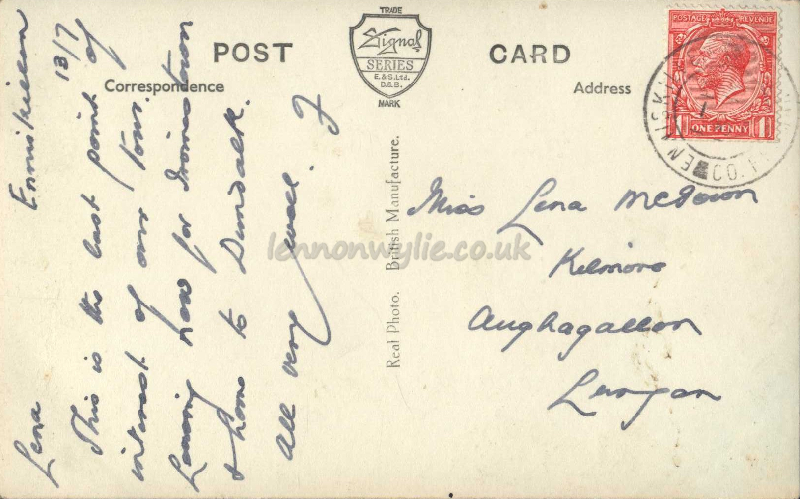 POST CARD
TRADE
Signal
SERIES
E.&S.Ltd.
D&B.
MARK
Correspondence
Address
POSTAGE REVENUE
1 ONE PENNY 1
Enniskillen
13/7
Lena
This is the last point of
interest of our tour.
Leaving now for
& home to Dundalk.
All very well. F
Real Photo. British Manufacture.
Miss Lena McGown
Kilmore
Aughagallon
Lurgan
lennonwylie.co.uk